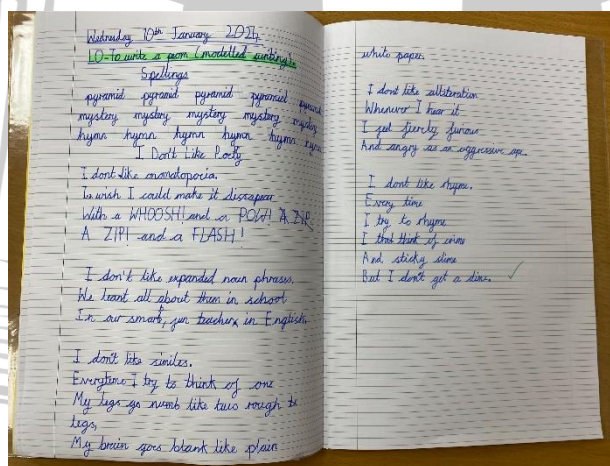 Wednesday 10th January 2024
LO-To write a poem (modelled writing).
Spellings
pyramid pyramid pyramid pyramid pyramid
mystery mystery mystery mystery mystery
hymn hymn hymn hymn hymn hymn
I Don't Like Poetry
I dont like onomatopoeia.
I wish I could make it dissapear
With a WHOOSH! and a POW! A ZIP
A ZIP! and a FLASH!
I don't like expanded noun phrases,
We learnt all about them in school
In our smart, fun teachers in English.
I don't like similes.
Everytime I try to think of one
My legs go numb like two rough
legs,
My brain goes blank like plain
white paper.
I dont like alliteration
Whenever I hear it
I feel fiercly furious
And angry as an aggressive ape.
I dont like rhyme.
Every time
I try to rhyme
I think of crime
And sticky slime
But I don't get a dime.